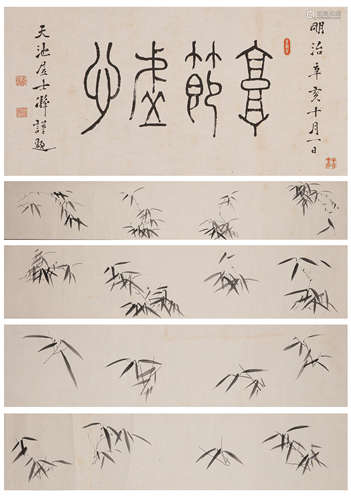 明治辛亥十月一日
節虛心
天池居士謹題